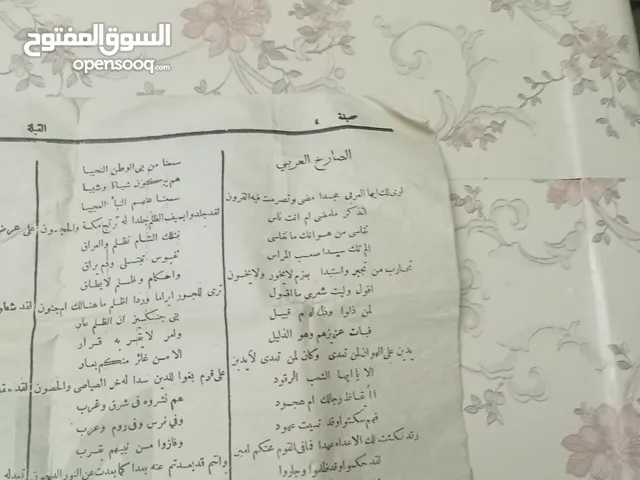 السوق المفتوح
opensooq.com
صفحة ٤ القبلة
الصارخ العربي
ايها العربي مجدا مضى وتصرمت فيه القرون
اتذكر مامضى ام انت ناس
تقاسي من هوانك ما تقاسي
الم تك سيدا صعب المراس
تحارب من تجبر واستبدا بعزم لايخور ولايخون
اقول وليت شعري ما اقول
لمن ذلوا
فبات عزيزهم وهو الذليل
يدين على الهوان لمن تعدى وكان لمن تعدى لايدين
الا يا ايها الشعب الرقود
أأيقاظ رجالك ام هجود
فهم سكتوا وقد نسيت عهود
وقد نكثت لك الاعداء عهدا فما في القوم عندكم امين
لقد حكموا وقد ظلموا وجاروا
سمعنا من بني الوطن النحيبا
هم يبكون شبانا وشيبا
سمعنا عنهم النبأ العجيبا
فقد جلدوا بسيف الظلم جلدا له ترتج مكة والحجون
بتلك الشام تظلم والعراق
نفوس تبتلى ودم يراق
واحكام وظلم لايطاق
ترى للجور ابراما وردا اظلم ما هنالك ام جنون
بني جنكيز ان الظلم عار
وامر لا يقر به قرار
الا من غائر منكم يغار
على قوم بغوا للدين سدا له خر الصياصي والحصون
هم نشروه في شرق وغرب
وفي فرس وفي روم وعرب
وفازوا من نبيهم بقرب
وانتم قد بعدتم عنه بعدا كما بعدت عن النور الدجون
على عرض
لقد شعار
لقد
تبدله